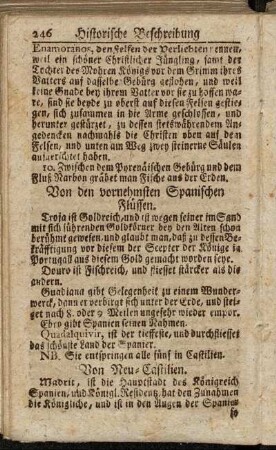 246 Historische Beschreibung
Enamoranos, den Felsen der Verliebten nennen,
weil ein schöner Christlicher Jüngling, samt der
Tochter des Mohren Königs vor dem Grimm ihres
Vatters auf dasselbe Gebürg geflohen, und weil
keine Gnade bey ihrem Vatter vor sie zu hoffen wa-
re, sind sie beyde zu oberst auf diesen Felsen gestie-
gen, sich zusammen in die Arme geschlossen, und
herunter gestürtzt, zu dessen stetswährendem An-
gedencken nachwahls die Christen oben auf dem
Felsen, und unten am Weg zwey steinerne Säulen
aufgerichtet haben.
10. Zwischen dem Pyrenäischen Gebürg und dem
Fluß Narbon gräbet man Fische aus der Erden.
Von den vornehmsten Spanischen
Flüssen.
Troja ist Goldreich, und ist wegen seiner im Sand
mit sich führenden Goldkörner bey den Alten schon
berühmt gewesen, und glaubt man, daß zu dessen Be-
kräfftigung vor diesem der Scepter der Könige in
Portugall aus diesem Gold gemacht worden seye.
Douro ist Fischreich, und fliesset stärcker als die
andern.
Guadiana gibt Gelegenheit zu einem Wunder-
werck, dann er verbirgt sich unter der Erde, und stei-
get nach 8. oder 9 Meilen ungefehr wieder empor.
Ebro gibt Spanien seinen Nahmen.
Quadalquivir, ist der tieffeste, und durchfliesset
das schönste Land der Spanier.
NB. Sie entspringen alle fünf in Castilien.
Von Neu-Castilien.
Madrit, ist die Hauptstadt des Königreich
Spanien, und Königl. Residentz, hat den Zunahmen
die Königliche, und ist in den Augen der Spanier
so